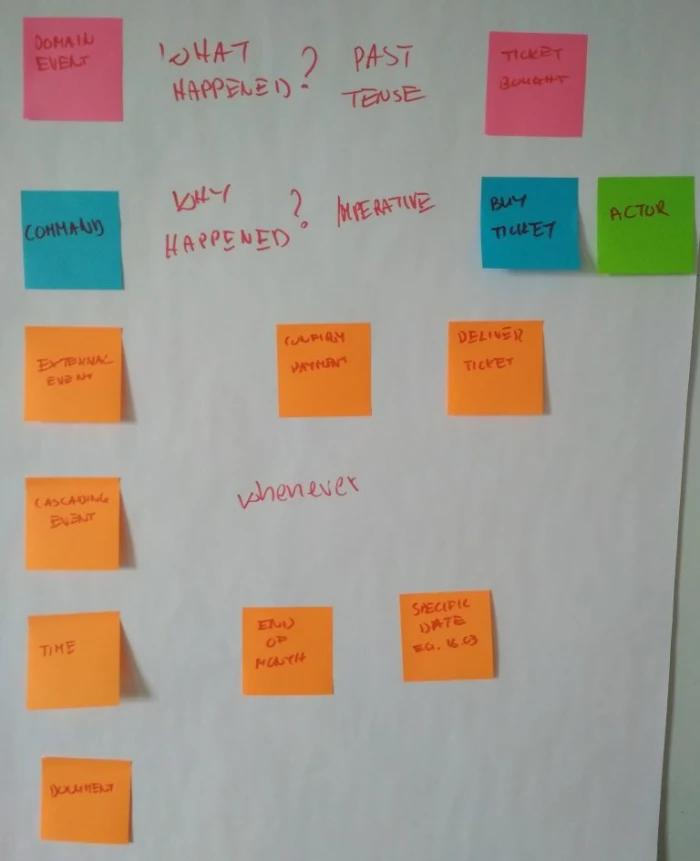 DOMAIN
EVENT
WHAT
HAPPENED?
PAST
TENSE
TICKET
BOUGHT
COMMAND
WHY
HAPPENED?
IMPERATIVE
BUY
TICKET
ACTOR
EXTERNAL
EVENT
CONFIRM
PAYMENT
DELIVER
TICKET
CASCADING
EVENT
whenever
TIME
END
OF
MONTH
SPECIFIC
DATE
EG. 16.03
DOCUMENT